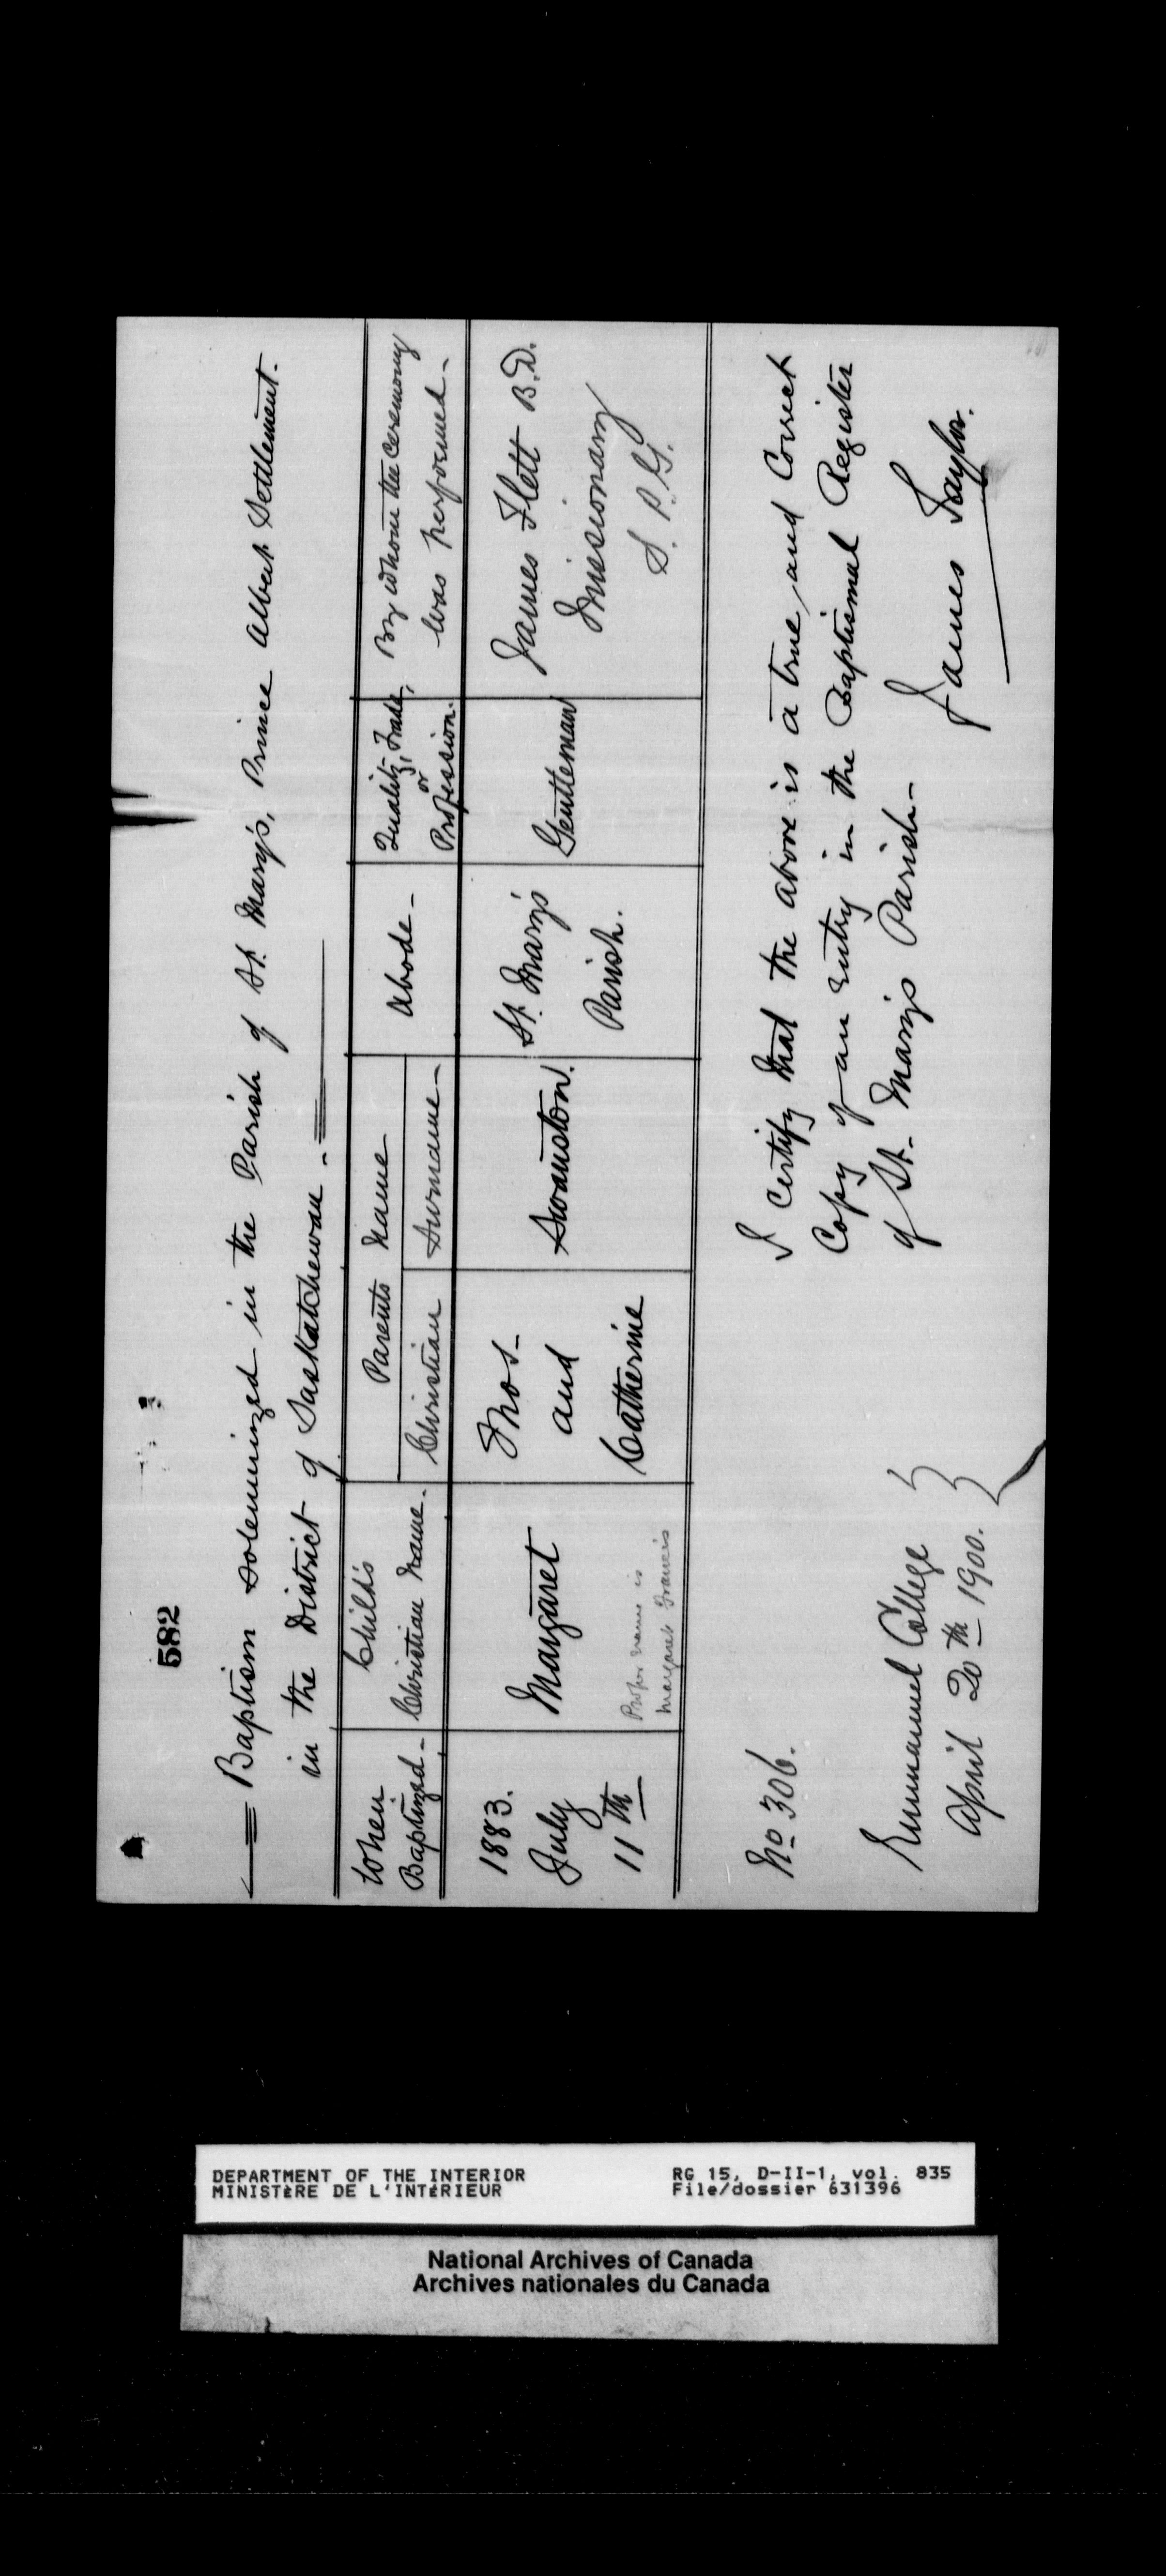 582
Baptism Solemnized in the Parish of St. Mary's, Prince Albert Settlement.
in the District of Saskatchewan -
When
Baptized -
Child's
Christian Name.
Parents Name
Christian
Surname -
Abode -
Quality, Trade,
or
Profession.
By Whom the Ceremony
was performed -
1883.
July
11th
Margaret
Proper name is
Margaret Francis
Thos -
and
Catherine
Swanston.
St. Mary's
Parish.
Gentleman
James Flett B.D.
Missionary
S. P. G.
No 306.
I Certify that the above is a true, and Correct
Copy of an entry in the Baptismal Register
of St. Mary's Parish -
James Taylor.
Emmanuel College
April 20th 1900.
DEPARTMENT OF THE INTERIOR
MINISTÈRE DE L'INTÉRIEUR
RG 15, D-II-1, vol. 835
File/dossier 631396
National Archives of Canada
Archives nationales du Canada